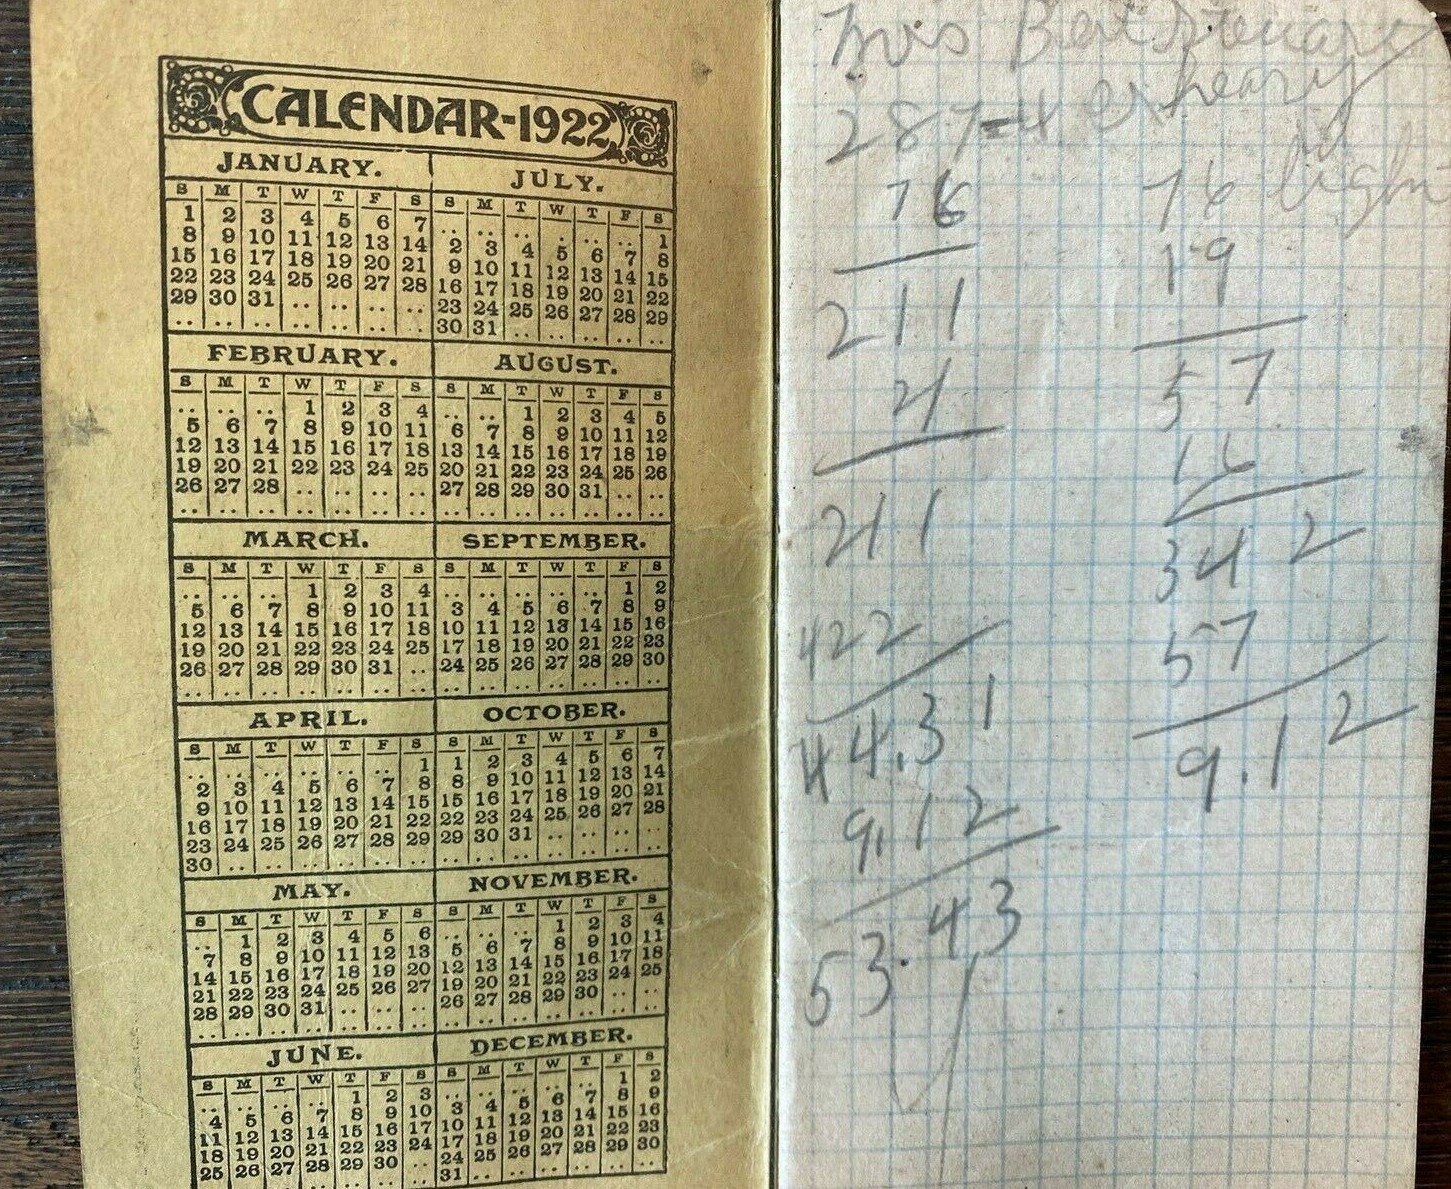 CALENDAR-1922
JANUARY.
S M T W T F S
1 2 3 4 5 6 7
8 9 10 11 12 13 14
15 16 17 18 19 20 21
22 23 24 25 26 27 28
29 30 31 .. .. .. ..
.. .. .. .. .. .. ..
FEBRUARY.
S M T W T F S
.. .. .. 1 2 3 4
5 6 7 8 9 10 11
12 13 14 15 16 17 18
19 20 21 22 23 24 25
26 27 28 .. .. .. ..
.. .. .. .. .. .. ..
MARCH.
S M T W T F S
.. .. .. 1 2 3 4
5 6 7 8 9 10 11
12 13 14 15 16 17 18
19 20 21 22 23 24 25
26 27 28 29 30 31 ..
.. .. .. .. .. .. ..
APRIL.
S M T W T F S
.. .. .. .. .. .. 1
2 3 4 5 6 7 8
9 10 11 12 13 14 15
16 17 18 19 20 21 22
23 24 25 26 27 28 29
30 .. .. .. .. .. ..
MAY.
S M T W T F S
.. 1 2 3 4 5 6
7 8 9 10 11 12 13
14 15 16 17 18 19 20
21 22 23 24 25 26 27
28 29 30 31 .. .. ..
.. .. .. .. .. .. ..
JUNE.
S M T W T F S
.. .. .. .. 1 2 3
4 5 6 7 8 9 10
11 12 13 14 15 16 17
18 19 20 21 22 23 24
25 26 27 28 29 30 ..
JULY.
S M T W T F S
.. .. .. .. .. .. 1
2 3 4 5 6 7 8
9 10 11 12 13 14 15
16 17 18 19 20 21 22
23 24 25 26 27 28 29
30 31 .. .. .. .. ..
AUGUST.
S M T W T F S
.. .. 1 2 3 4 5
6 7 8 9 10 11 12
13 14 15 16 17 18 19
20 21 22 23 24 25 26
27 28 29 30 31 .. ..
.. .. .. .. .. .. ..
SEPTEMBER.
S M T W T F S
.. .. .. .. .. 1 2
3 4 5 6 7 8 9
10 11 12 13 14 15 16
17 18 19 20 21 22 23
24 25 26 27 28 29 30
.. .. .. .. .. .. ..
OCTOBER.
S M T W T F S
1 2 3 4 5 6 7
8 9 10 11 12 13 14
15 16 17 18 19 20 21
22 23 24 25 26 27 28
29 30 31 .. .. .. ..
.. .. .. .. .. .. ..
NOVEMBER.
S M T W T F S
.. .. .. 1 2 3 4
5 6 7 8 9 10 11
12 13 14 15 16 17 18
19 20 21 22 23 24 25
26 27 28 29 30 .. ..
.. .. .. .. .. .. ..
DECEMBER.
S M T W T F S
.. .. .. .. .. 1 2
3 4 5 6 7 8 9
10 11 12 13 14 15 16
17 18 19 20 21 22 23
24 25 26 27 28 29 30
31 .. .. .. .. .. ..
Mrs Bert Stewart
287-4 heavy
76
211
21
211
422
44.31
9.12
53.43
76 light
19
57
16
342
57
9.12